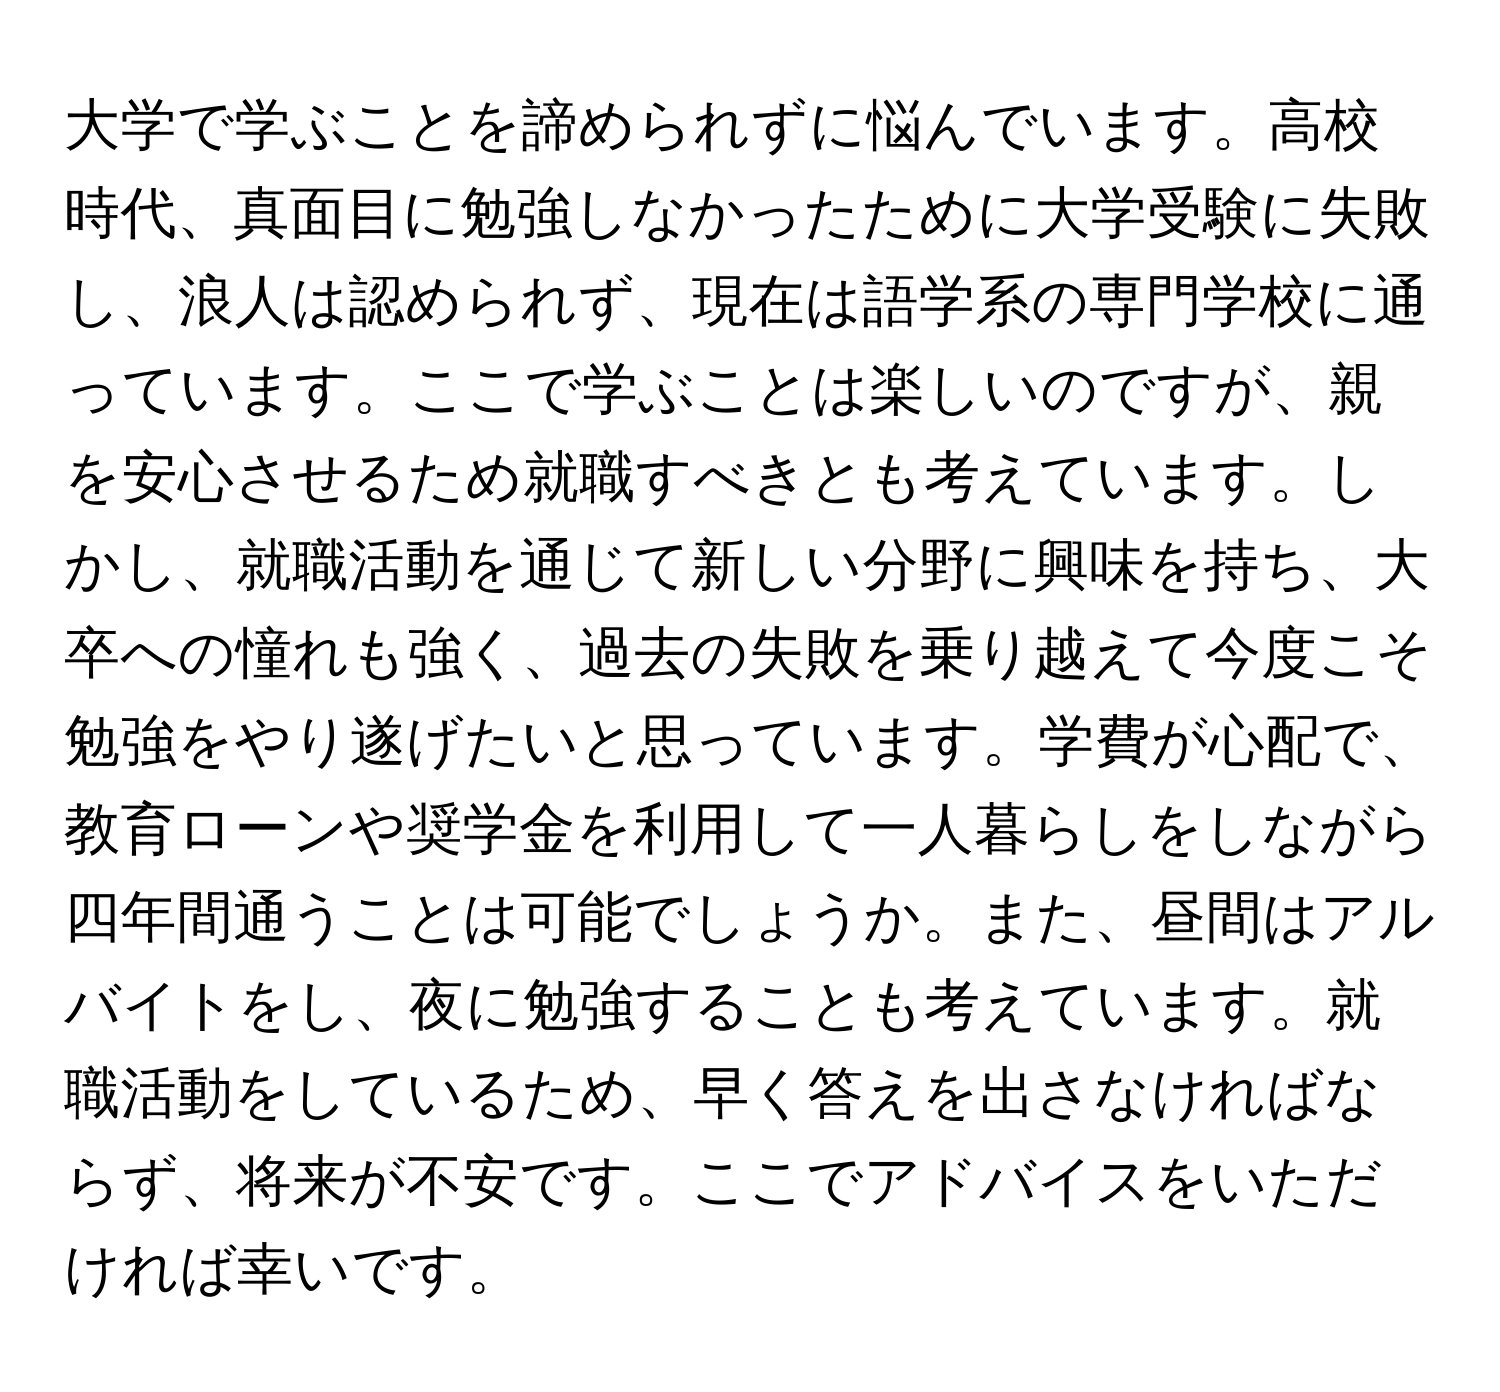 大学で学ぶことを諦められずに悩んでいます。高校
時代、真面目に勉強しなかったために大学受験に失敗
し、浪人は認められず、現在は語学系の専門学校に通
っています。ここで学ぶことは楽しいのですが、親
を安心させるため就職すべきとも考えています。し
かし、就職活動を通じて新しい分野に興味を持ち、大
卒への憧れも強く、過去の失敗を乗り越えて今度こそ
勉強をやり遂げたいと思っています。学費が心配で、
教育ローンや奨学金を利用して一人暮らしをしながら
四年間通うことは可能でしょうか。また、昼間はアル
バイトをし、夜に勉強することも考えています。就
職活動をしているため、早く答えを出さなければな
らず、将来が不安です。ここでアドバイスをいただ
ければ幸いです。